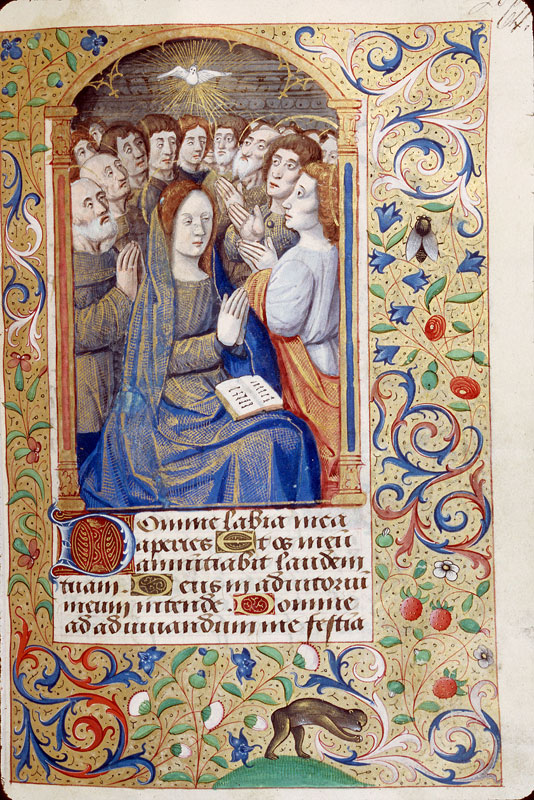 Domine labia mea
aperies Et os meu
annuntiabit laudem
tuam. Deus in adiutoriu
meum intende. Domine
ad adiuuandum me festia